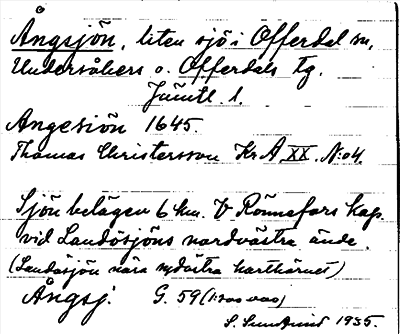 Ångsjön, liten sjö i Offerdal sn,
Undersåkers o. Offerdals tg.
Jämtl. l.
Angesiön 1645.
Thomas Christersson Kr A XX. N:o 4.
Sjön belägen 6 km. V Rönnefors kap.
vid Landösjöns nordvästra ände.
(Landösjön nära sydöstra karthörnet)
Ångsj. G. 59 (1:200 000)
S. Sundlind 1935.